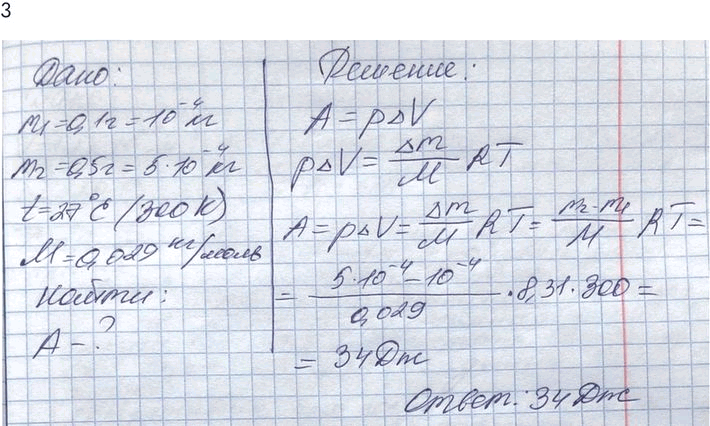 3
Дано:
m₁=0,1г=10⁻⁴кг
m₂=0,5г=5·10⁻⁴кг
t=27°C (300К)
M=0,029 кг/моль
Найти:
A-?
Решение:
A=pΔV
pΔV=Δm/M RT
A=pΔV=Δm/M RT=m₂-m₁/M RT=
=5·10⁻⁴-10⁻⁴/0,029·8,31·300=
=34Дж
Ответ: 34Дж